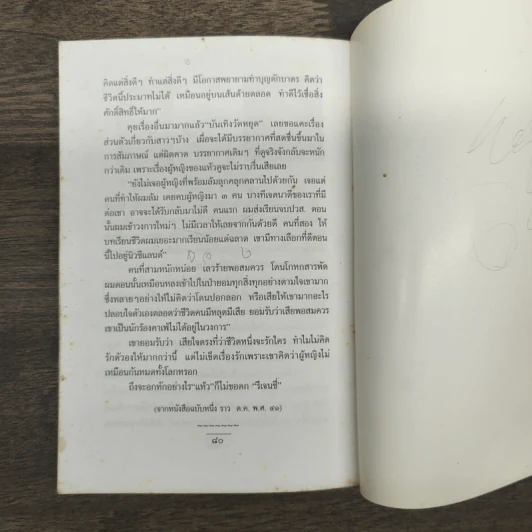 คิดแต่สิ่งดีๆ ทำแต่สิ่งดีๆ มีโอกาสพยายามทำบุญตักบาตร คิดว่า
ชีวิตนี้ประมาทไม่ได้ เหมือนอยู่บนเส้นด้ายตลอด ทำดีไว้เชื่อสิ่ง
ศักดิ์สิทธิ์ให้มาก"
คุยเรื่องอื่นมามากแล้ว"บันเทิงวัดหยุด" เลยขอแคะเรื่อง
ส่วนตัวเกี่ยวกับสาวๆบ้าง เผื่อจะได้มีบรรยากาศที่สดชื่นขึ้นมาใน
การสัมภาษณ์ แต่ผิดคาด บรรยากาศเดิมๆ ที่ดูจริงจังกลับจะหนัก
กว่าเดิม เพราะเรื่องผู้หญิงของแห้วดูจะไม่ราบรื่นเสียเลย
"ยังไม่เจอผู้หญิงที่พร้อมล้มลุกคลุกคลานไปด้วยกัน เจอแต่
คนที่ทำให้ผมล้ม เคยคบผู้หญิงมา ๓ คน บางทีเจตนาดีของเราที่มี
ต่อเขา อาจจะได้รับกลับมาไม่ดี คนแรก ผมส่งเรียนจนปวส. ตอน
นั้นผมเข้าวงการใหม่ๆ ไม่มีเวลาให้เลยจากกันด้วยดี คนที่สอง ให้
บทเรียนชีวิตผมเยอะมากเรียนน้อยแต่ฉลาด เขามีทางเลือกที่ดีตอน
นี้ไปอยู่นิวซีแลนด์"
คนที่สามหนักหน่อย เลวร้ายพอสมควร โดนโกหกสารพัด
ผมตอนนั้นเหมือนหลงเข้าไปในป่ายอมทุกสิ่งทุกอย่างตามใจเขามาก
ซึ่งหลายๆอย่างให้ไม่คิดว่าโดนปอกลอก หรือเสียให้เขามากอะไร
ปลอบใจตัวเองตลอดว่าชีวิตคนมีหลุดมีเสีย ยอมรับว่าเสียพอสมควร
เขาเป็นนักร้องคาเฟ่ไม่ได้อยู่ในวงการ"
เขายอมรับว่า เสียใจตรงที่ว่าชีวิตหนึ่งจะรักใคร ทำไมไม่คิด
รักตัวเองให้มากกว่านี้ แต่ไม่เข็ดเรื่องรักเพราะเขาคิดว่าผู้หญิงไม่
เหมือนกันหมดทั้งโลกหรอก
ถึงจะอกหักอย่างไร"แห้ว"ก็ไม่ขอตก "รีเจนซี่"
(จากหนังสือฉบับหนึ่ง ราว ต.ค. พ.ศ. ๔๑)
๘๐